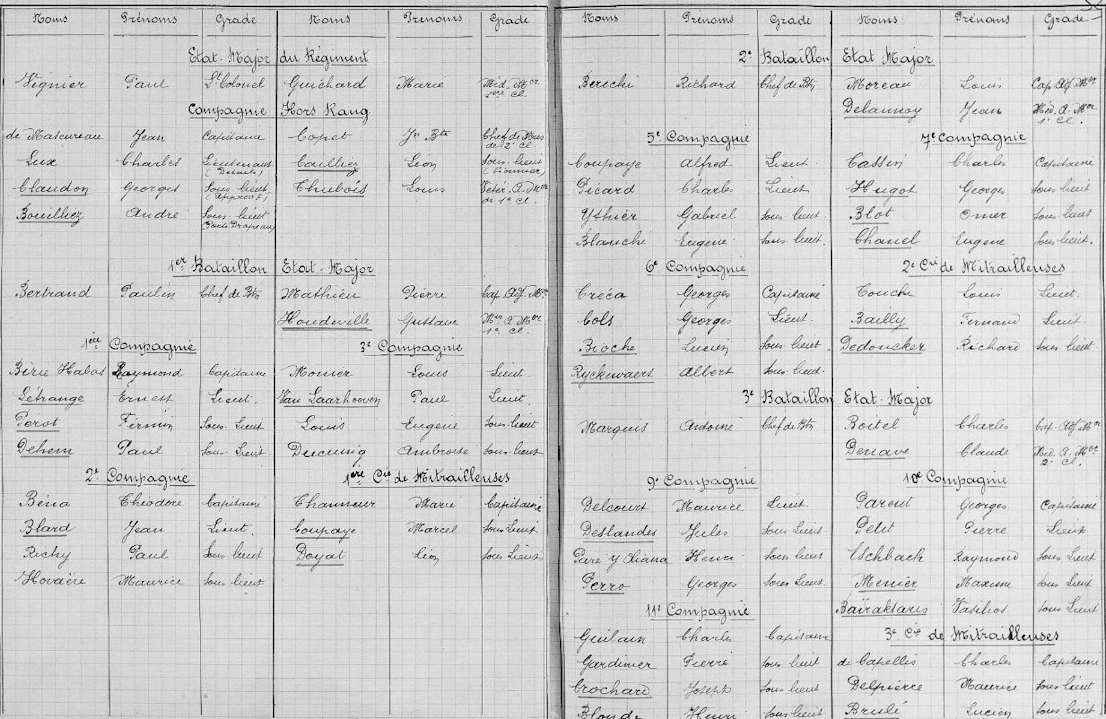 Noms Prénoms Grade Noms Prénoms Grade
Etat-Major du Régiment
Vignier Paul Lt Colonel Guichard Marie Méd. Mor 1ère Cl.
Compagnie Hors Rang
de Mascureau Jean Capitaine Copet Jn Bte Chef de Mus de 2e Cl
Lux Charles Lieutenant (Détails) Cailliez Léon Sous-lieut (Pionnier)
Claudon Georges Sous-lieut. (Approvt) Thubois Louis Vétér. A. Mor de 1e Cl.
Bouilliez André Sous-lieut Porte Drapeau
1er Bataillon Etat-Major
Bertrand Paulin Chef de Btn Mathieu Pierre Cap. Adj. Mor
Houdeville Gustave A. Mor 1e Cl.
1ère Compagnie 3e Compagnie
Raymond Capitaine Monier Louis Lieut
Létrange Ernest Lieut. Van Laarhooven Paul Lieut.
Perot Firmin Sous-Lieut Louis Eugène Sous-lieut
Dehem Paul Sous-Lieut Ducuing Ambroise Sous-lieut
2e Compagnie 1ère Cie de Mitrailleuses
Béna Théodore Capitaine Marie Capitaine
Blard Jean Lieut. Coupaye Marcel Sous Lieut
Richy Paul Sous lieut Doyat Sous Lieut
Hovaere Maurice Sous lieut
Noms Prénoms Grade Noms Prénoms Grade
2e Bataillon Etat Major
Berechi Richard Chef de Btn Moreau Louis Cap. Adj. Mor
Delannoy Jean Méd. A. Mor 1e Cl.
5e Compagnie 7e Compagnie
Coupaye Alfred Lieut. Cassin Charles Capitaine
Picard Charles Lieut Hugot Georges Sous lieut
Ythier Gabriel Sous lieut. Blot Omer Sous lieut
Blanche Eugène Sous lieut. Chanel Eugène Sous lieut.
6e Compagnie 2e Cie de Mitrailleuses
Créca Georges Capitaine Couche Louis Lieut.
Cols Georges Lieut. Bailly Fernand Lieut
Bioche Lucien Sous lieut Dedoncker Richard Sous lieut
Ryckwaert Albert Sous lieut
3e Bataillon Etat-Major
Marquis Antoine Chef de Btn Boitel Charles Cap. Adj. Mor
Denave Claude Méd. A. Mor 2e Cl.
9e Compagnie 10e Compagnie
Delcourt Maurice Lieut. Parent Georges Capitaine
Deslandes Jules Sous Lieut Petit Pierre Lieut
Henri Sous lieut Eschbach Raymond Sous Lieut
Perro Georges Sous Lieut. Menier Maxime Sous Lieut
11e Compagnie Baïraktaris Vasilios Sous Lieut
Guilain Charles Capitaine 3e Cie de Mitrailleuses
Gardinier Pierre Sous lieut de Capellis Charles Capitaine
Crochard Joseph Sous lieut Delpierre Maurice Sous lieut
Blonde Henri Sous lieut Brulé Lucien Sous lieut.